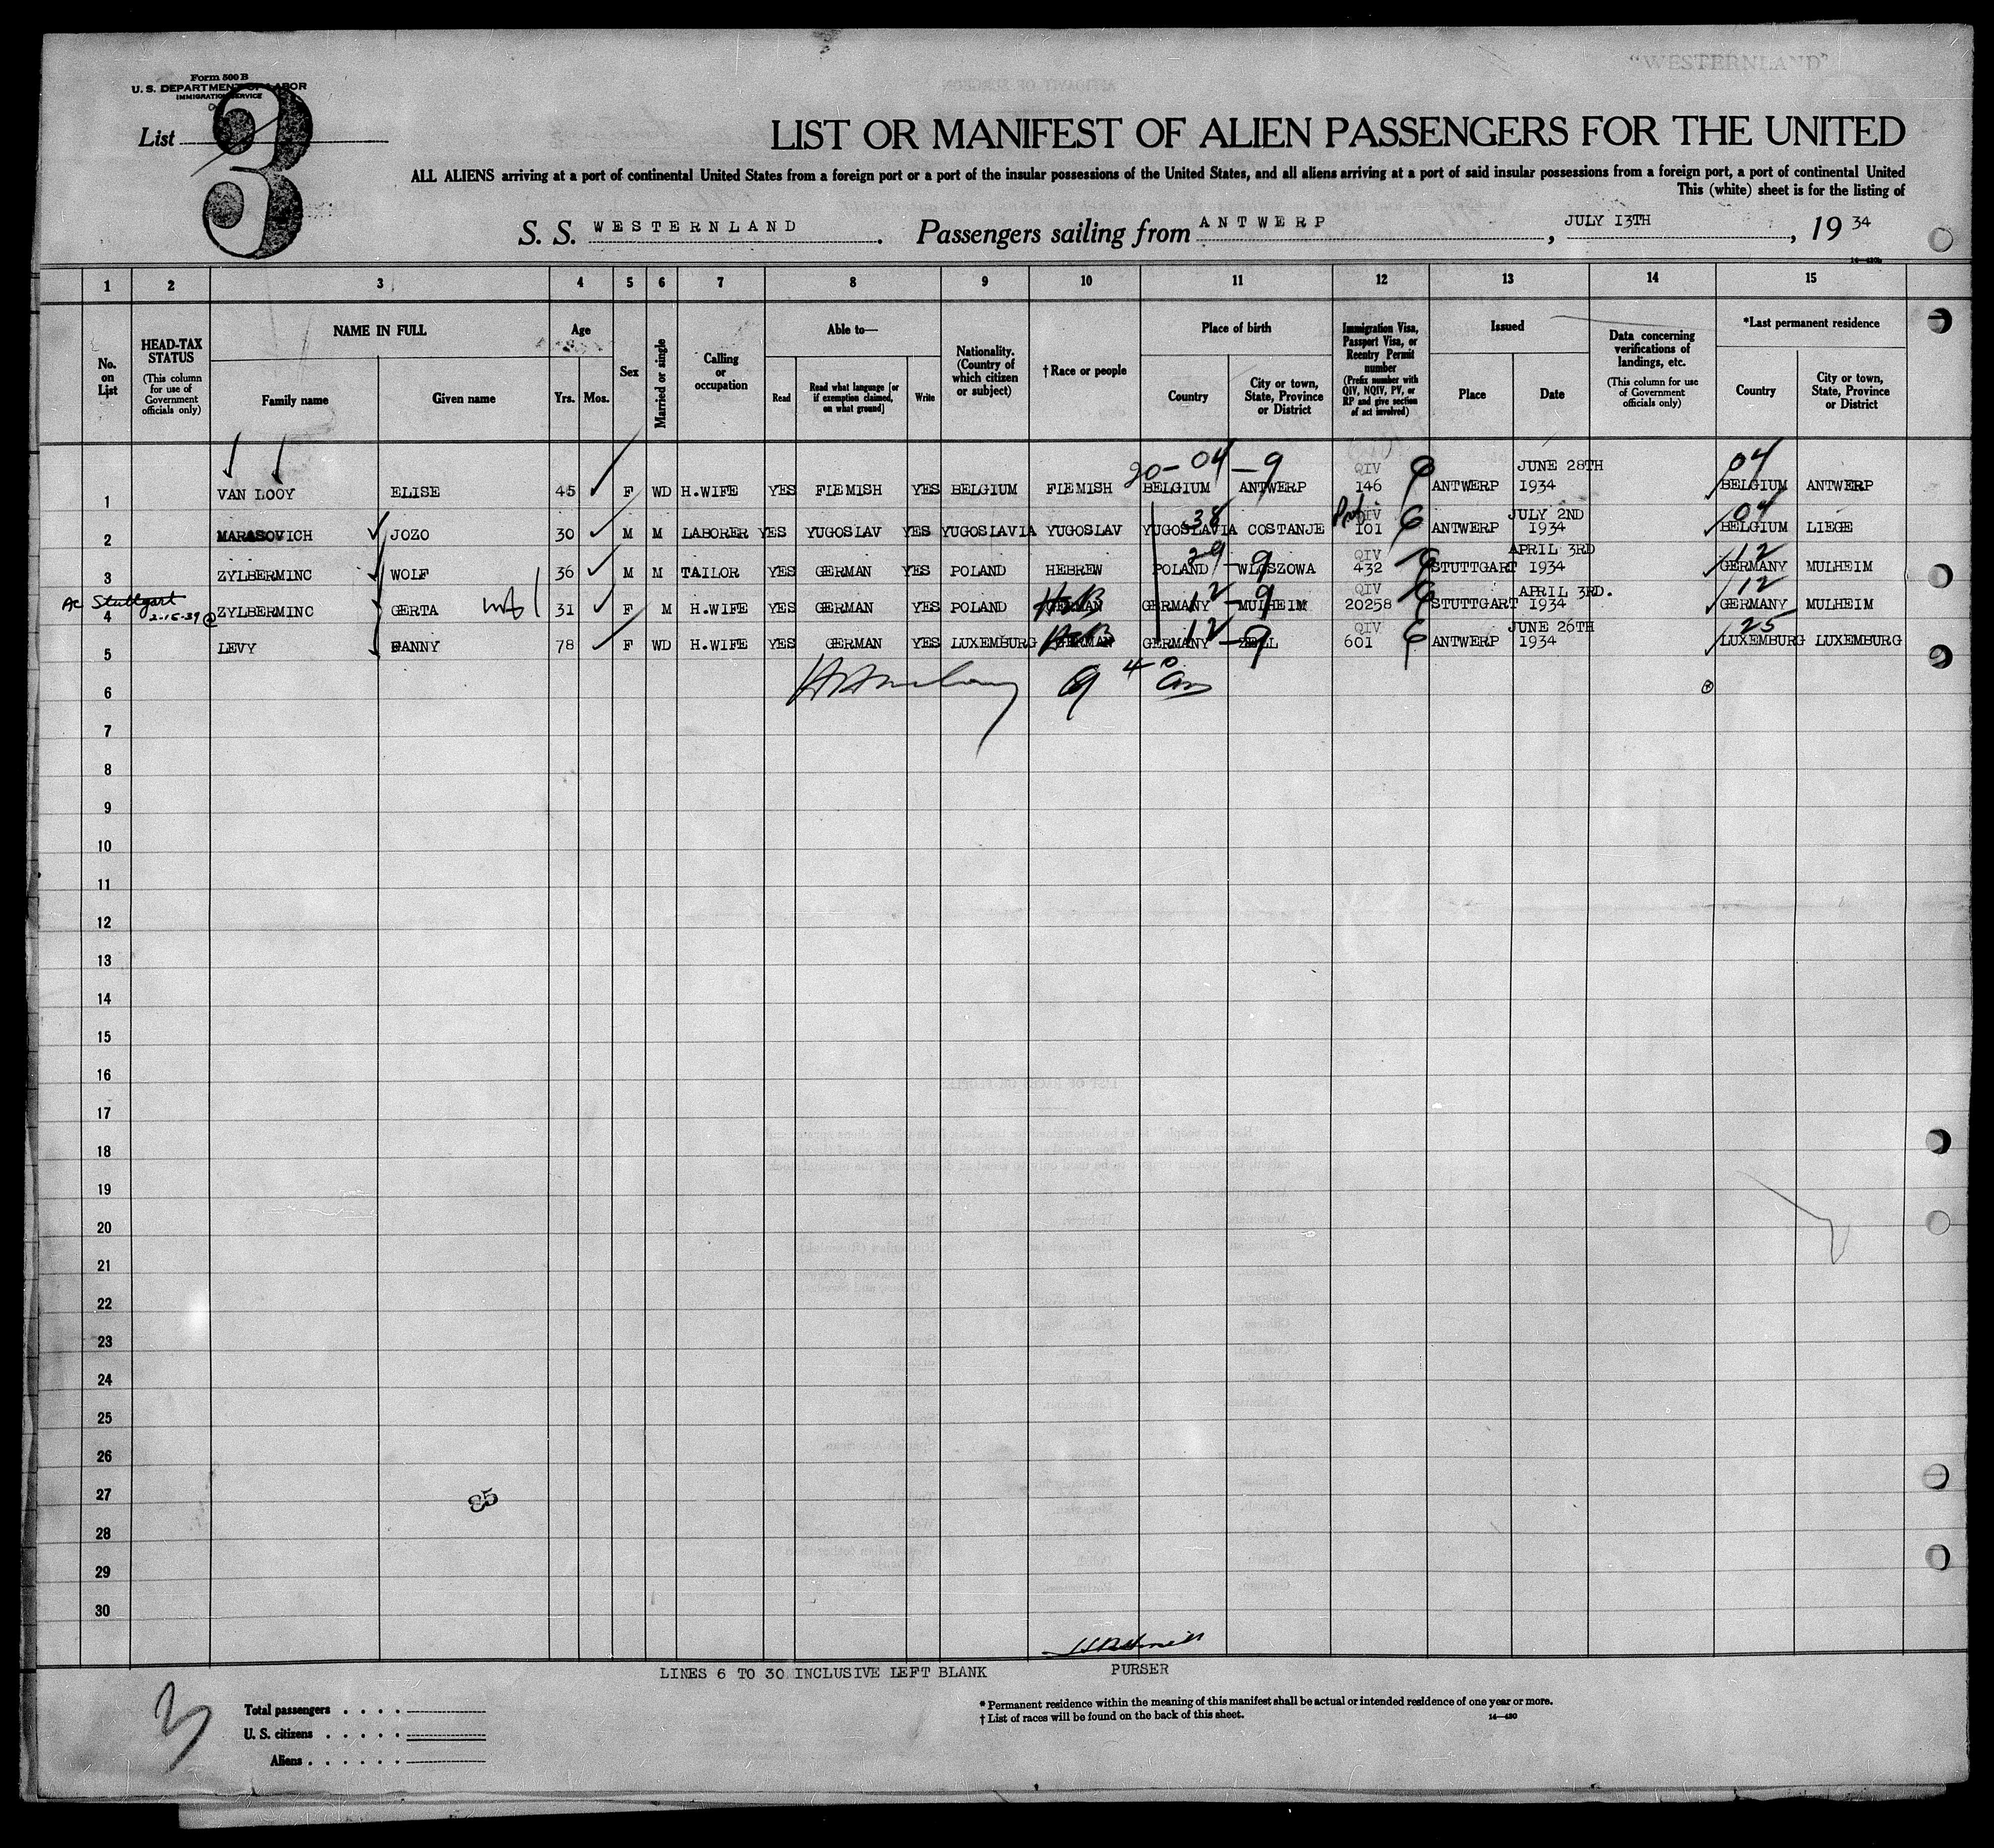 "WESTERNLAND"
Form 500 B
U. S. DEPARTMENT OF LABOR
IMMIGRATION SERVICE
List 3
LIST OR MANIFEST OF ALIEN PASSENGERS FOR THE UNITED
ALL ALIENS arriving at a port of continental United States from a foreign port or a port of the insular possessions of the United States, and all aliens arriving at a port of said insular possessions from a foreign port, a port of continental United
This (white) sheet is for the listing of
S. S. WESTERNLAND. Passengers sailing from ANTWERP, JULY 13TH, 19 34
1 2 3 4 5 6 7 8 9 10 11 12 13 14 15
No. on List
HEAD-TAX STATUS (This column for use of Government officials only)
NAME IN FULL
Family name
Given name
Age
Yrs. Mos.
Sex
Married or single
Calling or occupation
Able to—
Read
Read what language [or if exemption claimed, on what ground]
Write
Nationality. (Country of which citizen or subject)
† Race or people
Place of birth
Country
City or town, State, Province or District
Immigration Visa, Passport Visa, or Reentry Permit number (Prefix number with QIV, NQIV, PV, or RP and give section of act involved)
Issued
Place
Date
Data concerning verifications of landings, etc. (This column for use of Government officials only)
*Last permanent residence
Country
City or town, State, Province or District
20-04-9 04
1 VAN LOOY ELISE 45 F WD H.WIFE YES FLEMISH YES BELGIUM FLEMISH BELGIUM ANTWERP QIV 146 ANTWERP JUNE 28TH 1934 BELGIUM ANTWERP
38 04
2 MARASOVICH JOZO 30 M M LABORER YES YUGOSLAV YES YUGOSLAVIA YUGOSLAV YUGOSLAVIA COSTANJE QIV 101 ANTWERP JULY 2ND 1934 BELGIUM LIEGE
29-9 12
3 ZYLBERMINC WOLF 36 M M TAILOR YES GERMAN YES POLAND HEBREW POLAND WLOSZOWA QIV 432 STUTTGART APRIL 3RD 1934 GERMANY MULHEIM
Stuttgart 2-15-39 12-9 12
4 ZYLBERMINC GERTA 31 F M H.WIFE YES GERMAN YES POLAND GERMAN HEB GERMANY MULHEIM QIV 20258 STUTTGART APRIL 3RD. 1934 GERMANY MULHEIM
12-9 25
5 LEVY FANNY 78 F WD H.WIFE YES GERMAN YES LUXEMBURG GERMAN HEB GERMANY ZELL QIV 601 ANTWERP JUNE 26TH 1934 LUXEMBURG LUXEMBURG
6
7
8
9
10
11
12
13
14
15
16
17
18
19
20
21
22
23
24
25
26
27
28
29
30
85
LINES 6 TO 30 INCLUSIVE LEFT BLANK PURSER
3
Total passengers
U. S. citizens
Aliens
* Permanent residence within the meaning of this manifest shall be actual or intended residence of one year or more.
† List of races will be found on the back of this sheet.
14—430